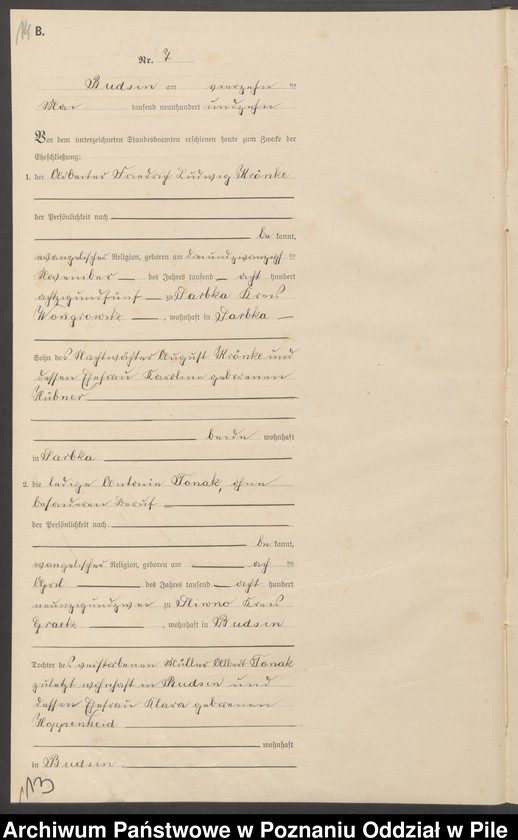 14 B.
Nr. 7
Budsin am vierzehn ten
Mai tausend neunhundert undzehn
Vor dem unterzeichneten Standesbeamten erschienen heute zum Zwecke der
Eheschließung:
1. der Arbeiter Friedrich Ludwig Krönke
der Persönlichkeit nach
be kannt,
evangelischer Religion, geboren am dreiundzwanzigsten
November des Jahres tausend acht hundert
achtzigundfünf zu Jarbka Kreis
Wongrowitz, wohnhaft in Jarbka
Sohn des Nachtwächter August Krönke und
dessen Ehefrau Karoline geborenen
Hübner
beide wohnhaft
in Jarbka
2. die ledige Antonie Tonak, ohne
besonderen Beruf
der Persönlichkeit nach
be kannt,
evangelischer Religion, geboren am acht ten
April des Jahres tausend acht hundert
neunzigundzwei zu Kreis
Graetz, wohnhaft in Budsin
Tochter des verstorbenen Müller Albert Tonak
zuletzt wohnhaft in Budsin und
dessen Ehefrau Klara geborenen
Koppenheid
wohnhaft
in Budsin
113
Archiwum Państwowe w Poznaniu Oddział w Pile